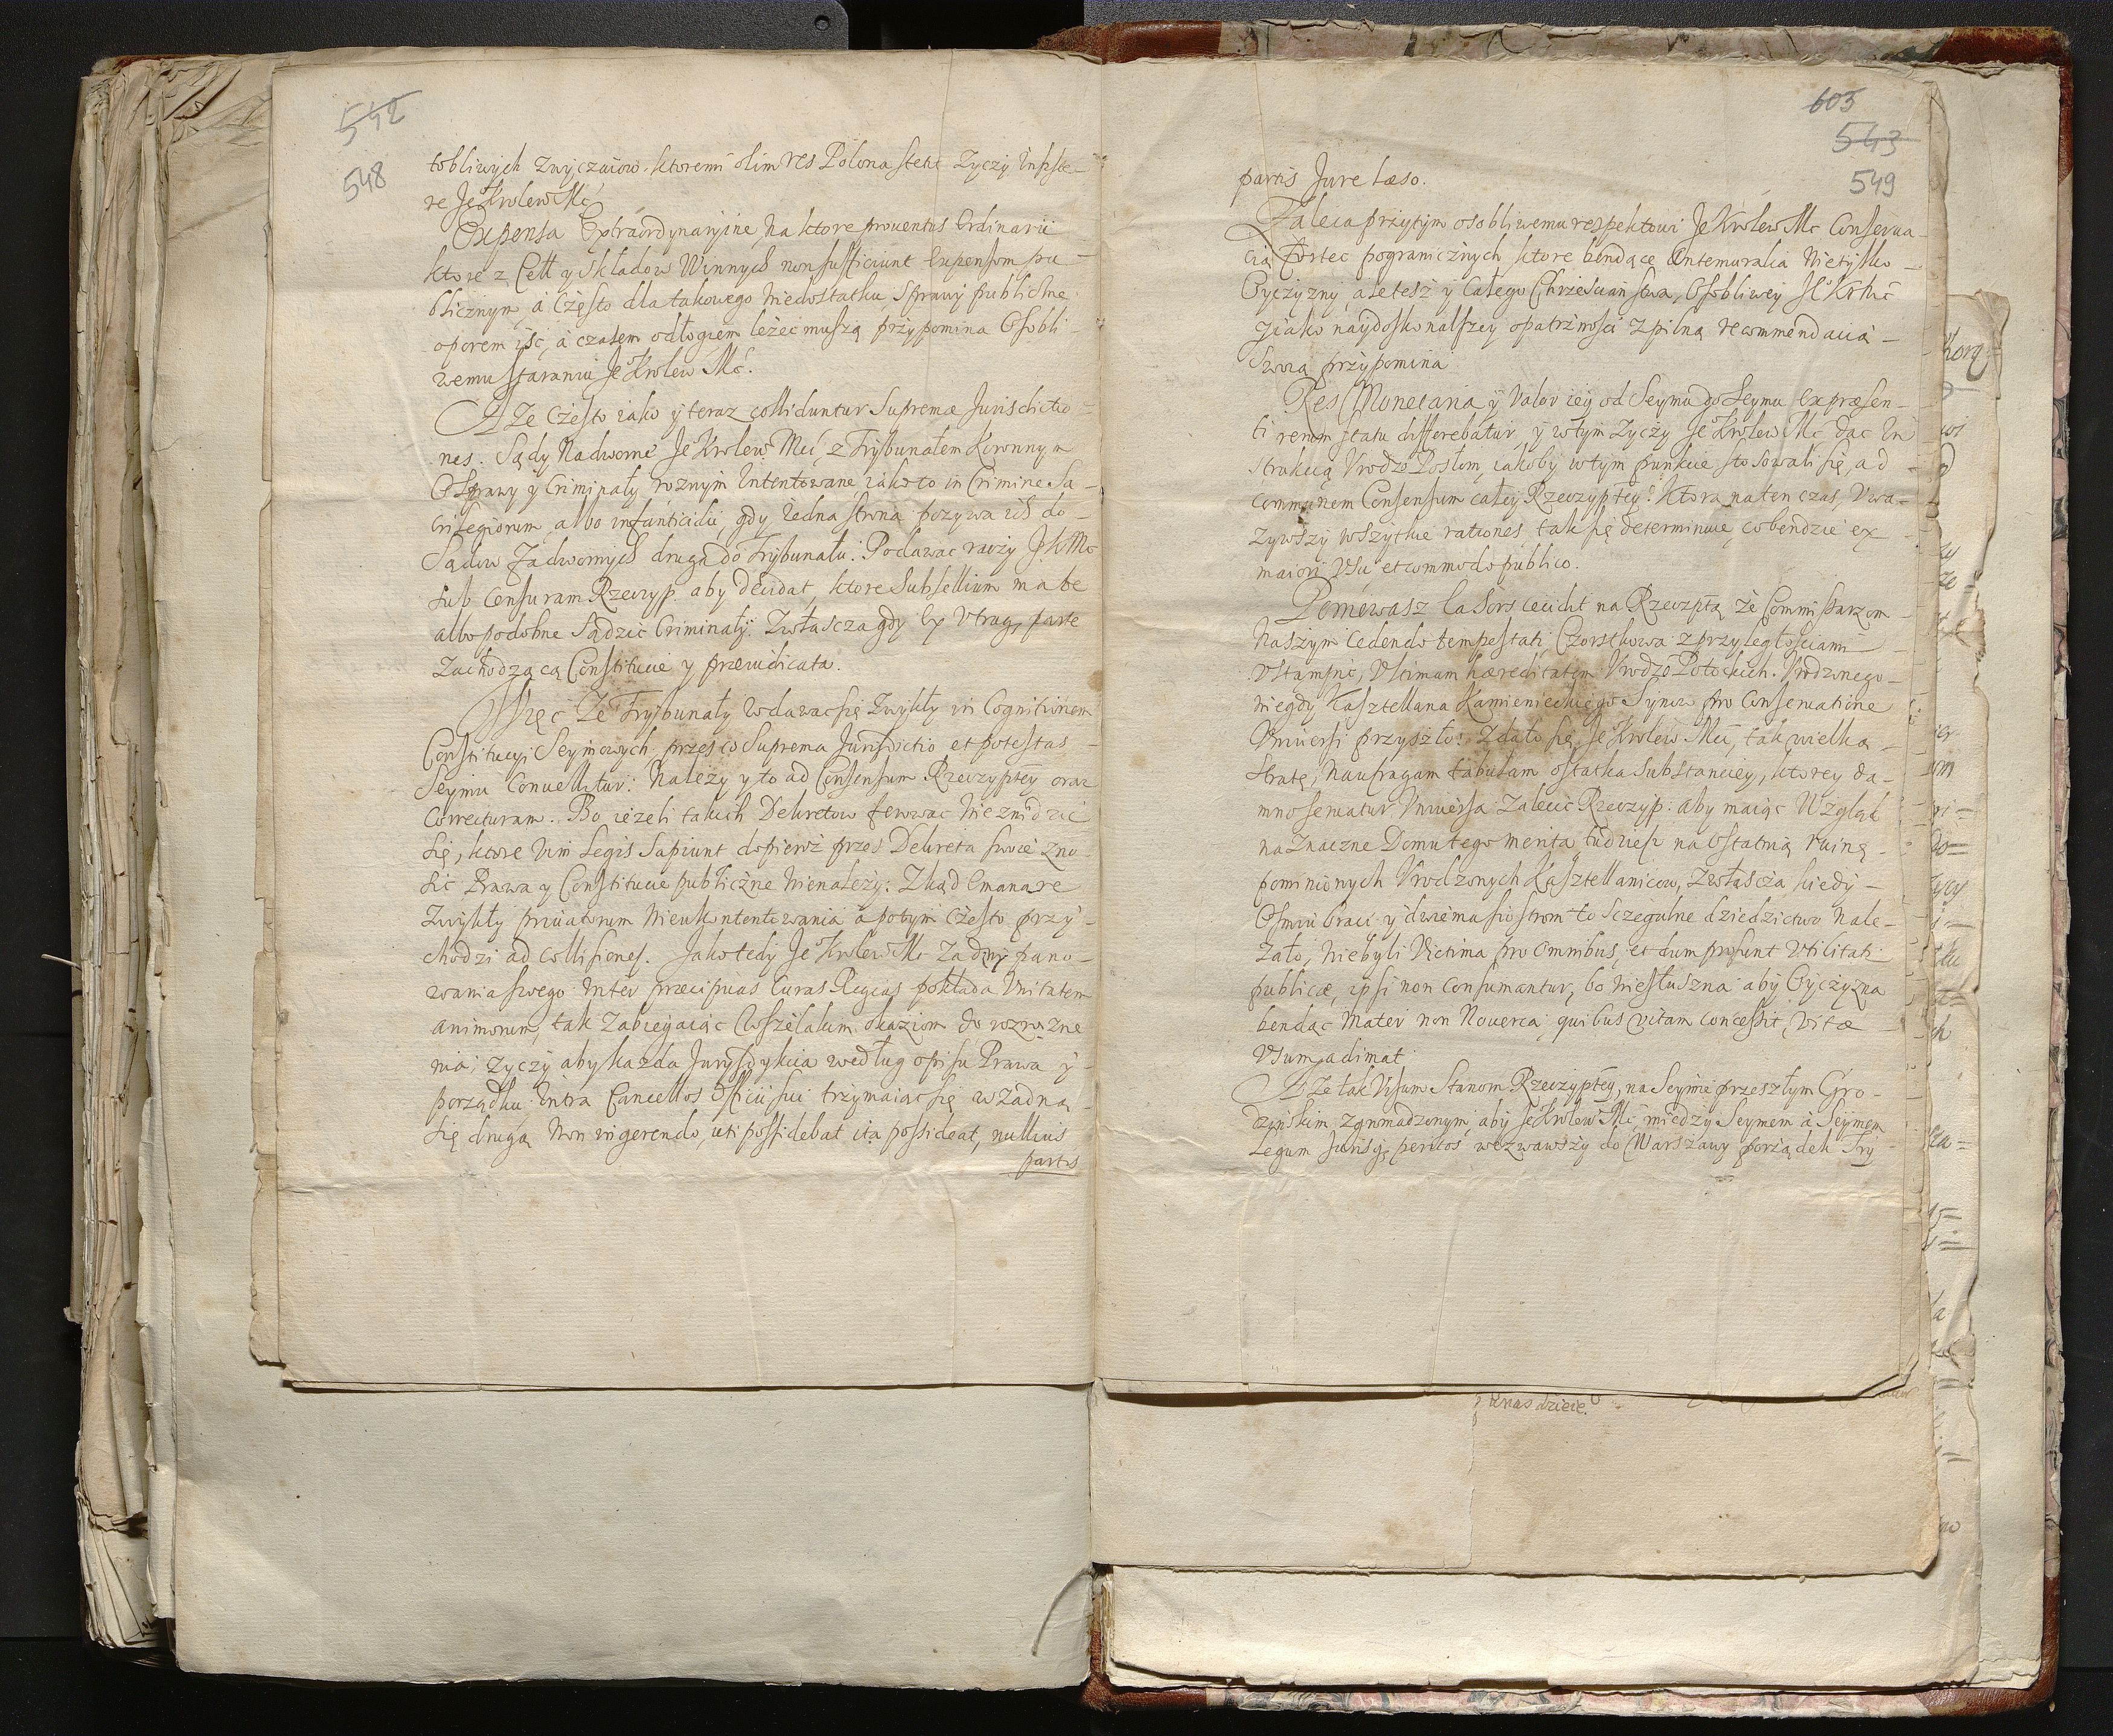 542
548
tobliwych zwyczaiow, ktoremi olim res Polona stetit Zyczy
re Je Krolew Mć
Expensa Extraordynaryine, na ktore prouentus Ordinarii
ktore z Cełł y składow Winnych non sufficiunt Expensom pu-
blicznym, à często dla takowego Niedostatku, Sprawy publiczne
oporem iść, à czasem odłogiem leżeć muszą przypomina Osobli-
wemu staraniu Je Krolew Mć.
A Ze często iako y teraz colliduntur Supremæ Jurisdictio-
nes. Sądy Nadworne Je Krolew Mći, z Trybunałem Koronnym
O Sprawy y Criminały roznym Intentowane, iako to in Crimine Sa-
crilegiorum, albo infanticidii, gdy iedna strona pozywa ich do
Sądow Zadwornych druga do Trybunału: Podawac raczy JKMć
sub Censuram Rzeczyp. aby decidat, ktore Subsellium ma te
albo podobne Sądzić Criminały. Zwłascza gdy Ex Utraq parte
Zachodzą cą Constitucie y præiudicata.
Więc Ze Trybunały wdawac się Zwykły in Cognitionem
Constitucyi Seymowych, przez co Suprema Jurisdictio et potestas
Seymu Conuellitur: Nalezy y to ad Consensum Rzeczyptey oraz
Correcturam. Bo ieżeli takich Dekretow
się, ktore Vim Legis Sapiunt dopieroż przez Dekreta swoie zno-
sić Prawa y Constitucie publiczne Nienależy: Zkąd Emanare
Zwykły priuatorum Nieukontentowania à potym często przy-
chodzi ad collisiones. Jako tedy Je Krolew Mć Za dny pano-
wania swego Inter præcipuas Curas Regias pokłada Vnitatem
animorum, tak Zabiegaiąc Wszelakim okaziom do rozrozne
nia, życzy aby kazda Jurysdykcia według opisu Prawa y
porządku Intra Cancellos Officii sui trzymaiąc się w Zadną
się drugą Non ingerendo, uti possidebat ita possideat, nullius
partis
603
543
549
partis Jure læso.
Zaleca przytym osobliwemu respektowi Je Krolew Mć Conserua-
cią Fortec pogranicznych ktore bendące Antemuralia Nietylko
Oyczyzny, ale tesz y Całego Chrzescianstwa, Osobliwey JeKrMć
y iako naydoskonalszey opatrznosci z pilną recommendacią
swoią przypomina
Res Monetaria y Valor iey od Seymu do Seymu Ex præsen-
ti rerum statu differebatur y w tym Zyczy Je Krolew Mć dac In
strukcią Vrodzo Posłom, iakoby w tym punkcie stosowali się, ad
communem Consensum całey Rzeczyptey: Ktora na ten czas, Vwa-
zywszy wszytkie rationes tak się determinuie, co bendzie ex
maiori Vsu et commodo publico.
Poniewasz Ea Sors cecidit na Rzeczptą że Commissarzom
Naszym cedendo tempestati Czorstkowa z przyległosciami
Vstąmpić, Vltimam hæreditatem Vrodzo Potockich. Vrodzonego
niegdy Kasztellana Kamienieckiego Synow pro Conseruatione
Vniuersi przyszło: Zdało się Je Krolew Mći, tak wielką
stratę, naufragam tabulam ostatka Substanciey, ktorey da-
mno seruatur Vniuersa Zalecić Rzeczyp: aby maiąc Wzgląd
na Znaczne Domu tego merita, tudziesz na ostatnią ruinę
pominionych Vrodzonych Kasztellanicow, Zwłascza kiedy
Osmiu braci y dwiema siostrom to sczegulne dziedzictwo Nale-
zało, Niebyli Victima pro Omnibus, et dum prosunt Vtilitati
publicæ, ipsi non Consumantur, bo Niesłuszna aby Oyczyzna
bendąc Mater non Nouerca quibus vitam concessit, vitæ
Vsum adimat
A Ze tak Visum Stanom Rzeczyptey, na Seymie przeszłym Gro-
dzinskim zgromadzonym, aby Je Krolew Mć, między Seymem à Seymem
Legum Jurisq peritos wezwawszy do Warszawy porządek Try